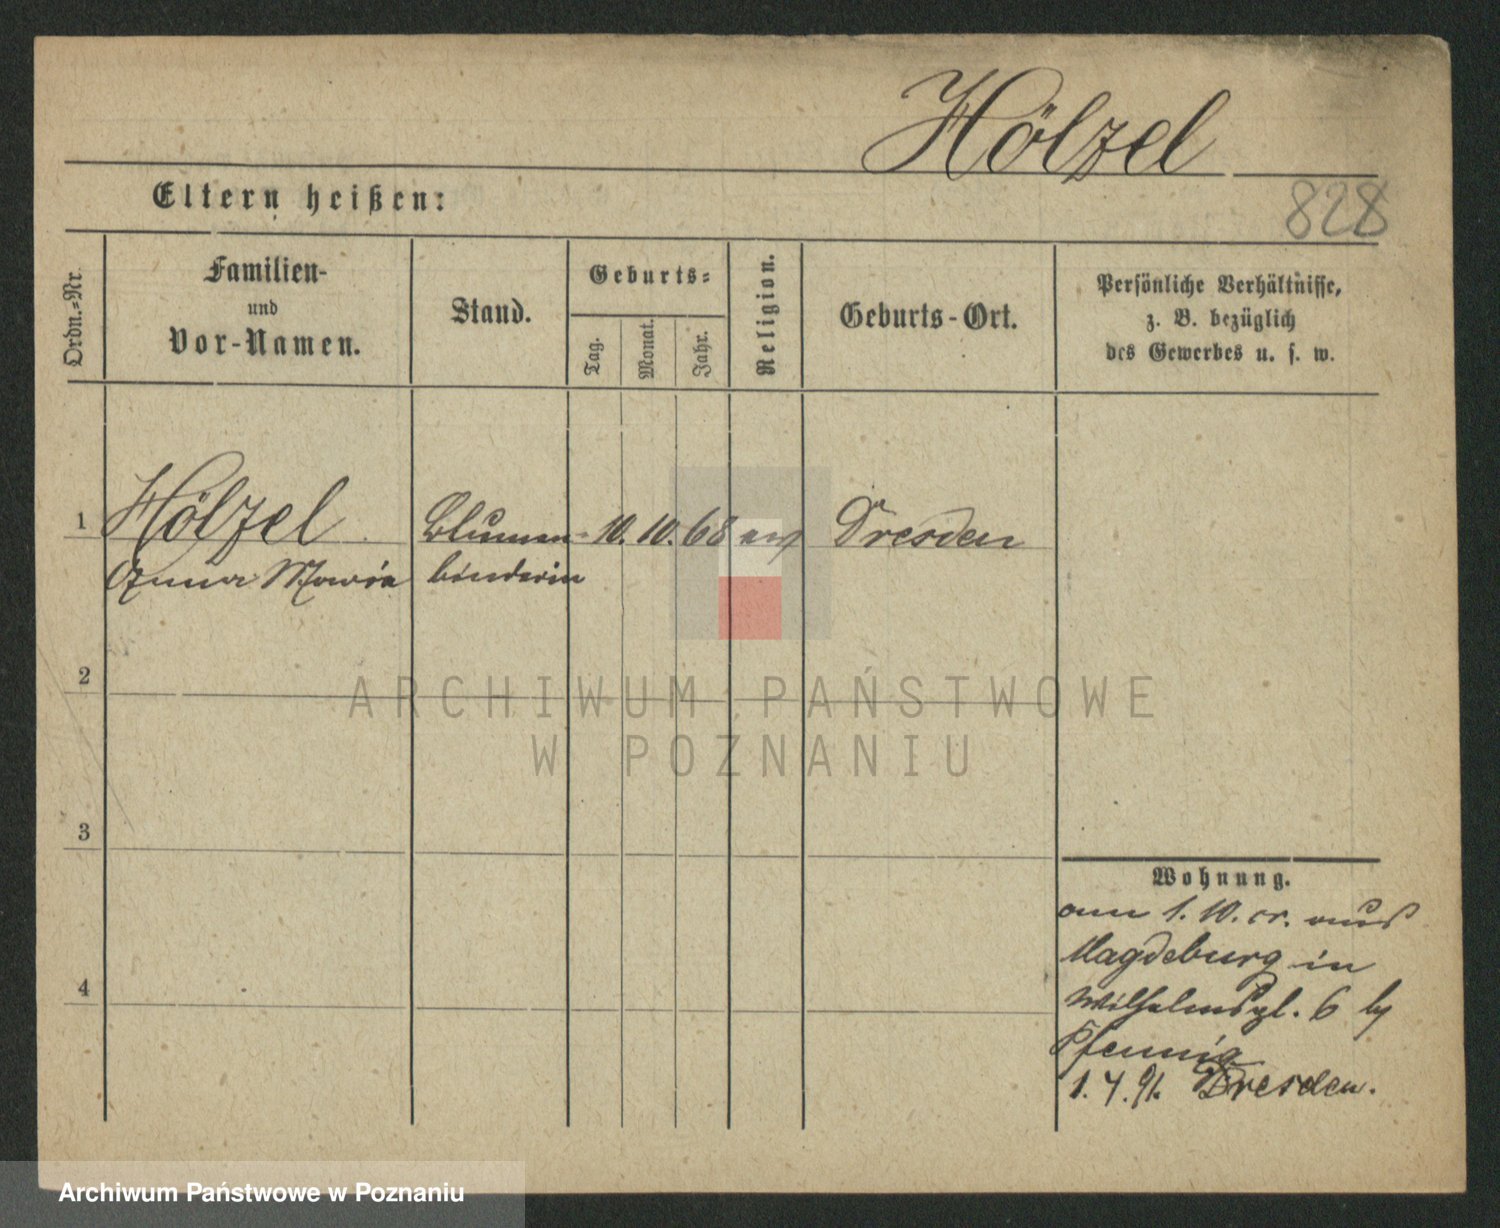 Hölzel
828
Eltern heißen:
Ordn.-Nr.
Familien-
und
Vor-Namen.
Stand.
Geburts-
Tag.
Monat.
Jahr.
Religion.
Geburts-Ort.
Persönliche Verhältnisse,
z. B. bezüglich
des Gewerbes u. s. w.
1 Hölzel Blumen- 10. 10. 68 ev Dresden
Anna Maria binderin
2
ARCHIWUM PAŃSTWOWE
W POZNANIU
3
Wohnung.
am 1. 10. cr. aus
Magdeburg in
4
Wilhelmspl. 6 by
Pfennig
1. 4. 91. Dresden.
Archiwum Państwowe w Poznaniu